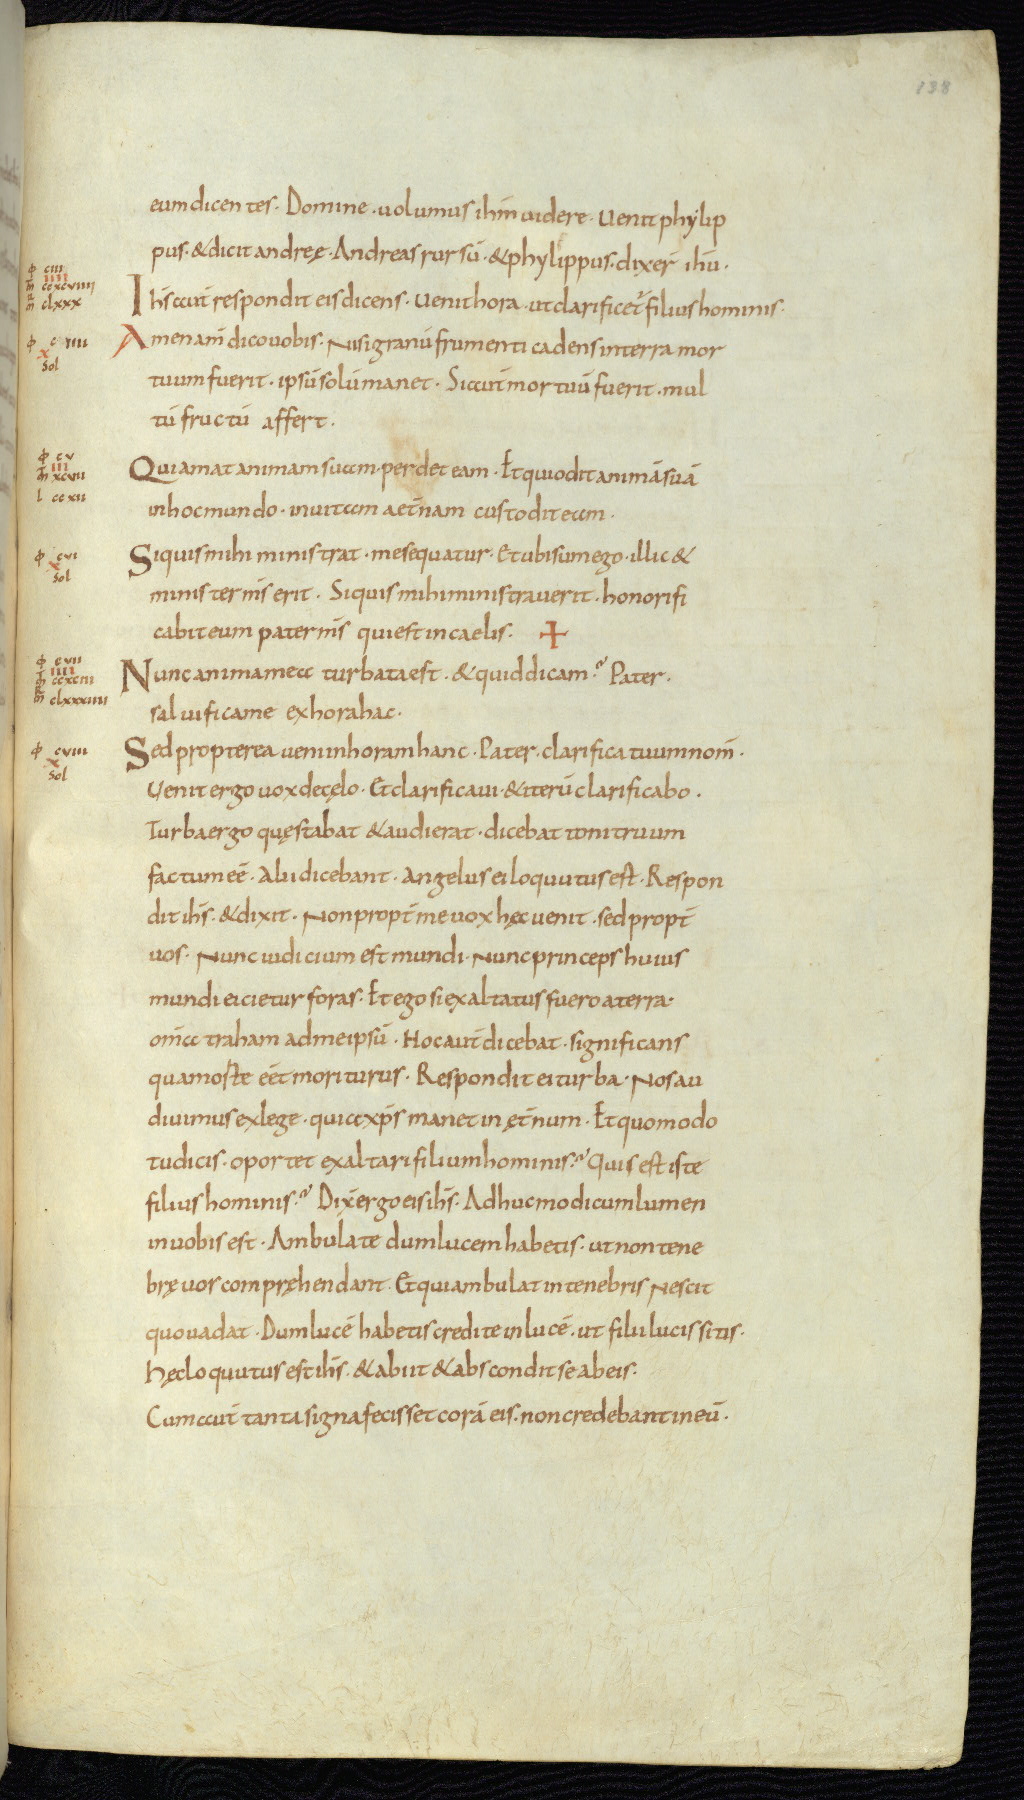 138
eum dicentes. Domine. uolumus ihm̄ uidere. Uenit phylip
pus. & dicit andreę. Andreas rursū. & phylippus. dixer̄ ihū.
ϕ ciii
m̄ ccxcviiii
m̄ clxxx
Ihs̄ aut̄ respondit eis dicens. Uenit hora. ut clarificet̄ filius hominis.
ϕ c iiii
x
Sol
Amen am̄ dico uobis. Nisi granū frumenti cadens in terra mor
tuum fuerit. ipsū solū manet. Si aut̄ mortuū fuerit. mul
tū fructū affert.
ϕ cv
iii
m̄ xcvii
l ccxii
Qui amat animam suam. perdet eam. Et qui odit animā suā
in hoc mundo. in uitam aet̄nam custodit eam.
ϕ cvi
x
Sol
Si quis mihi ministrat. me sequatur. Et ubi sum ego. illic &
minister m̄s erit. Si quis mihi ministrauerit. honorifi
cabit eum pater m̄s qui est in caelis. +
ϕ cvii
iiii
m̄ ccxciii
m̄ clxxxiiii
Nunc anima mea turbata est. & quid dicam? Pater.
saluifica me ex hora hac.
ϕ cviii
x
Sol
Sed propterea ueni in horam hanc. Pater. clarifica tuum nom̄.
Uenit ergo uox de cęlo. Et clarificaui. & iterū clarificabo.
Turba ergo quę stabat & audierat. dicebat tonitruum
factum eē. Alii dicebant. Angelus ei loquutus est. Respon
dit ihs̄. & dixit. Non propt̄ me uox hęc uenit. sed propt̄
uos. Nunc iudicium est mundi. Nunc princeps huius
mundi eicietur foras. Et ego si exaltatus fuero a terra.
om̄a traham ad me ipsū. Hoc aut̄ dicebat. significans
qua morte eēt moriturus. Respondit ei turba. Nos au
diuimus ex lege. quia xp̄s manet in ęt̄num. Et quomodo
tu dicis. oportet exaltari filium hominis? Quis est iste
filius hominis? Dix̄ ergo eis ihs̄. Adhuc modicum lumen
in uobis est. Ambulate dum lucem habetis. ut non tene
brę uos compręhendant. Et qui ambulat in tenebris nescit
quo uadat. Dum lucē habetis credite in lucē. ut filii lucis sitis.
Hęc loquutus est ihs̄. & abiit & abscondit se ab eis.
Cum aut̄ tanta signa fecisset corā eis. non credebant in eū.